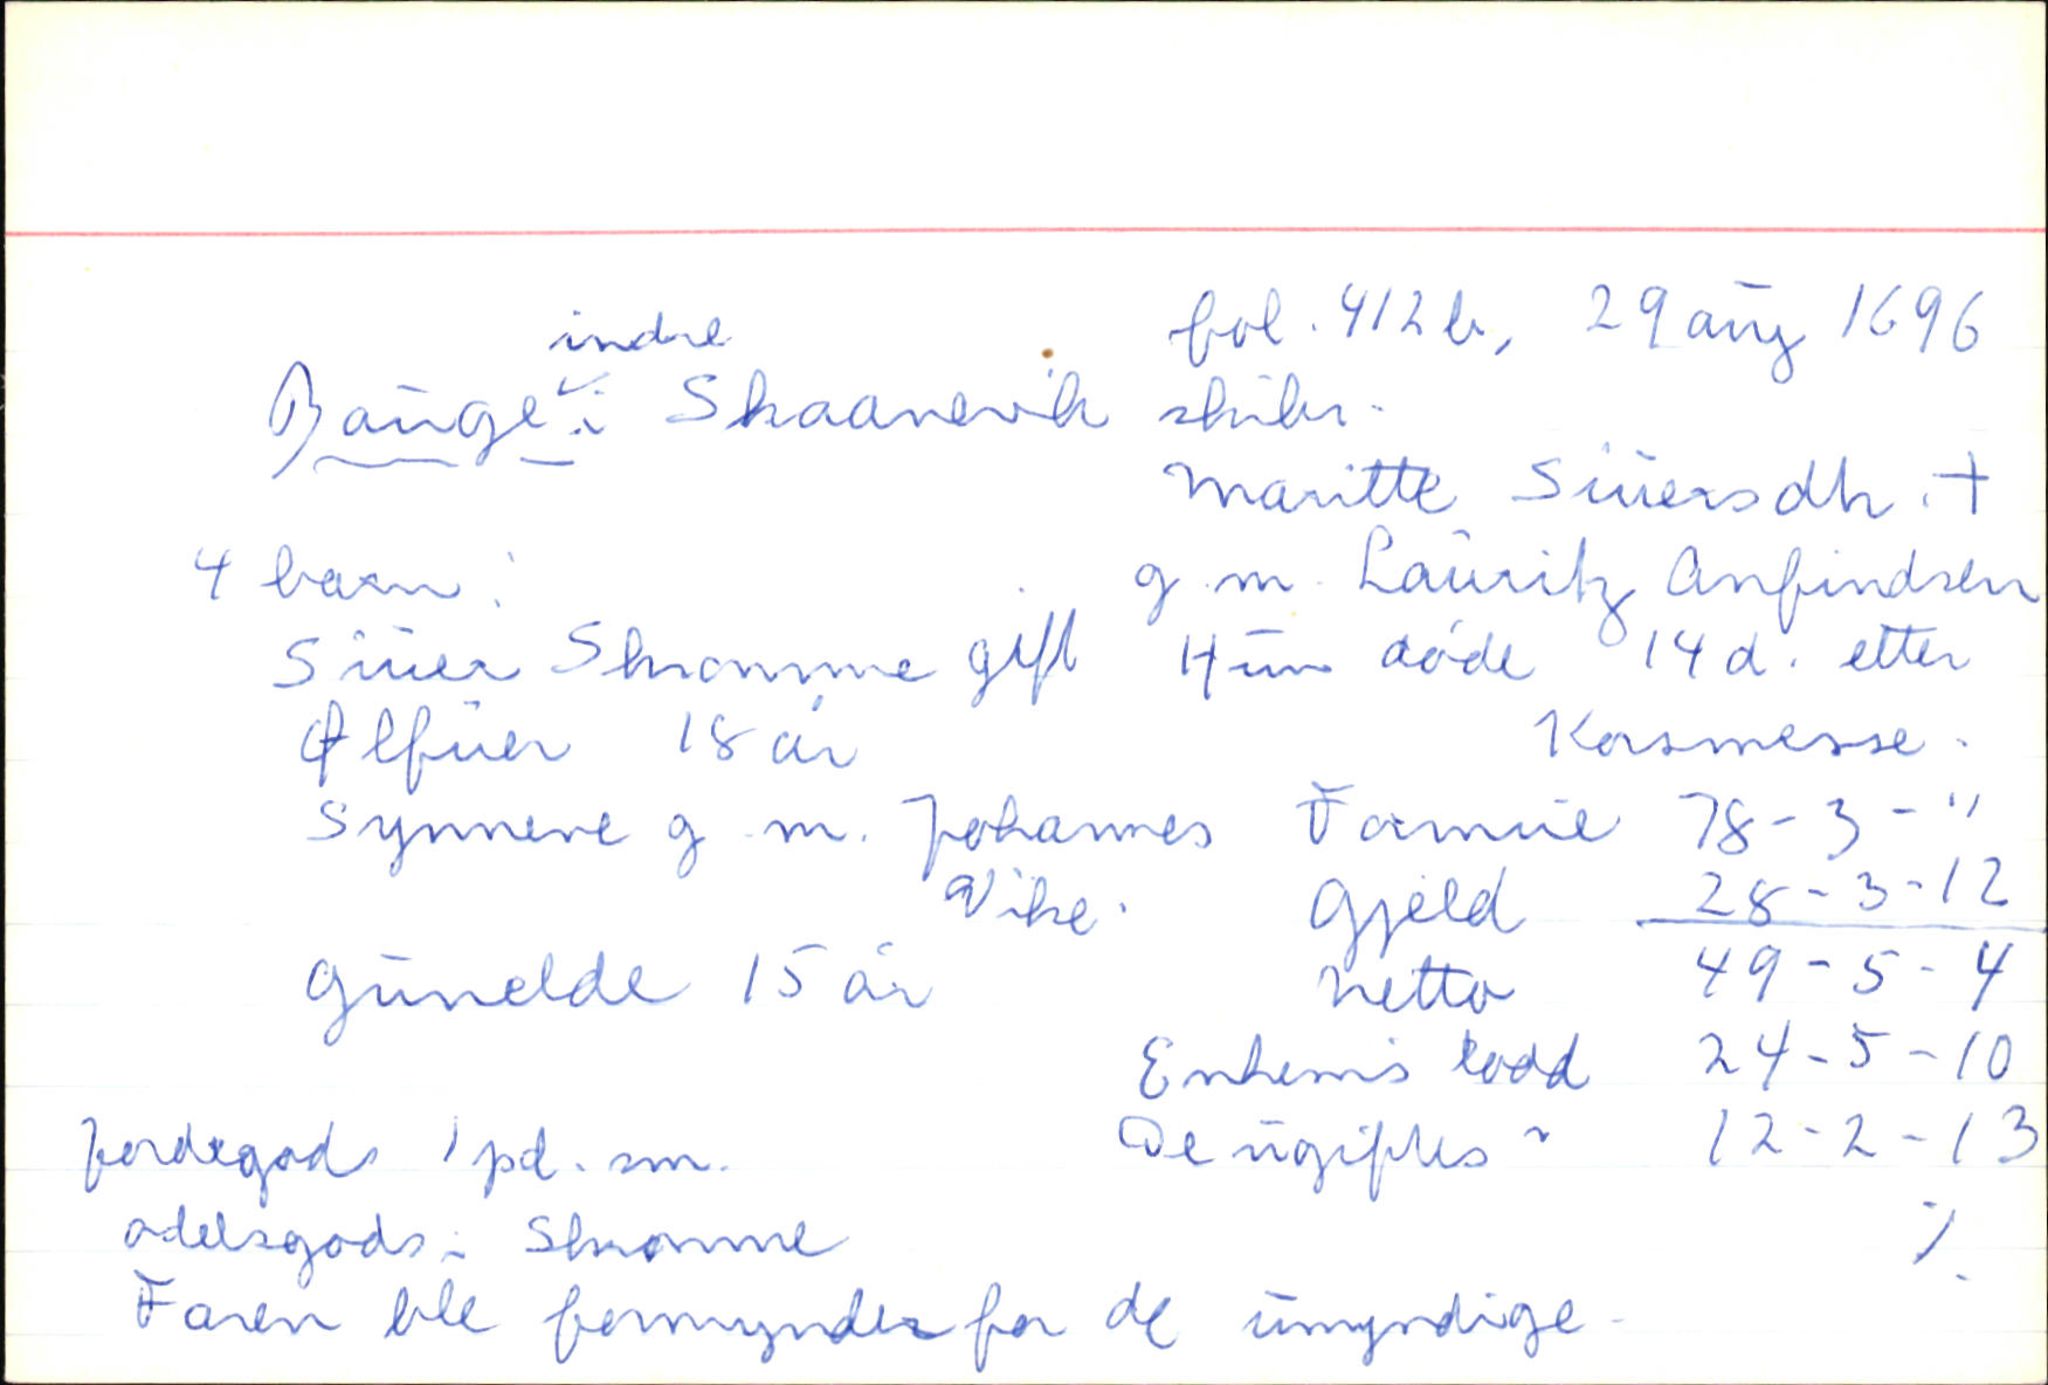 fol. 412b, 29 aug 1696
indre
Bauge i Skaanevik skibr.
Maritte Siuersdtr. +
4 barn:
g.m. Lauritz Anfindsen
Siuer Skromme gift
Hun døde 14 d. etter
Korsmesse.
Ølfuer 18 år
Synneve g.m. Johannes
Vike.
Formue 78-3-"
Gjeld 28-3-12
Gunelde 15 år
Netto 49-5-4
Enkems lodd 24-5-10
De ugiftes " 12-2-13
Jordegods 1 pd. sm.
odelsgods i Skromme
%
Faren ble formynder for de umyndige.